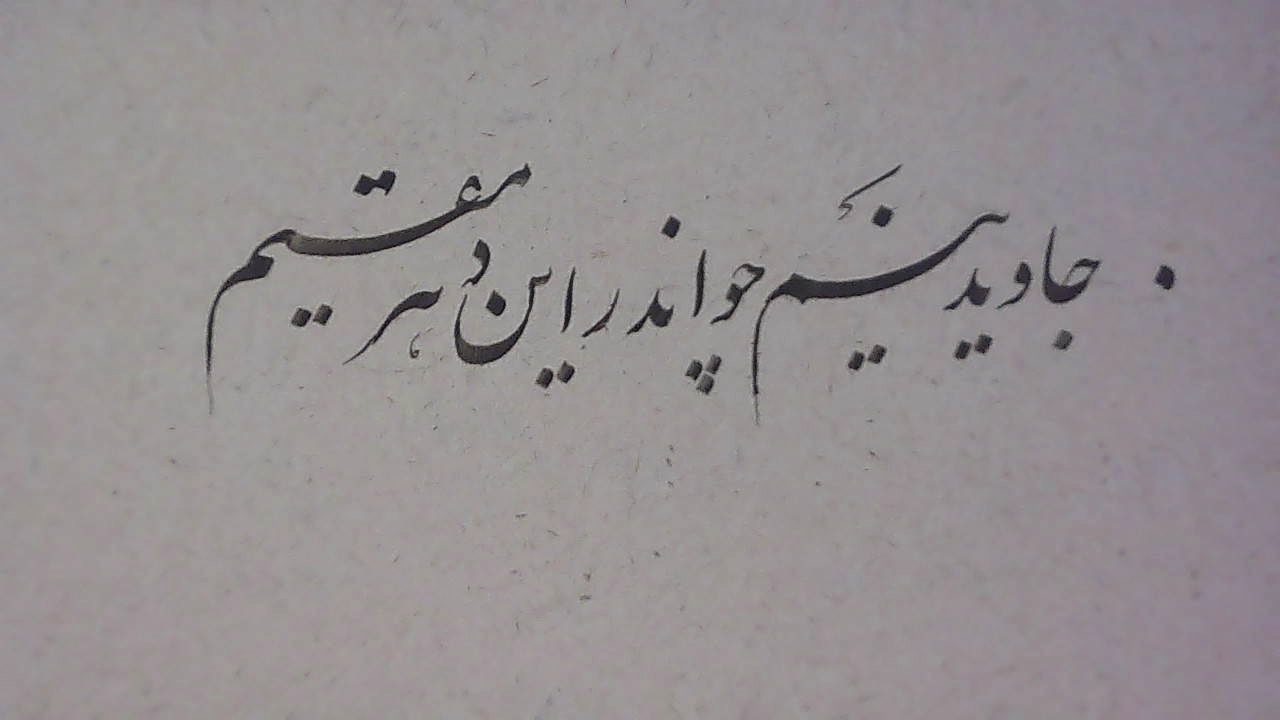 جاوید نیَم چو اندر این دهر مقیم